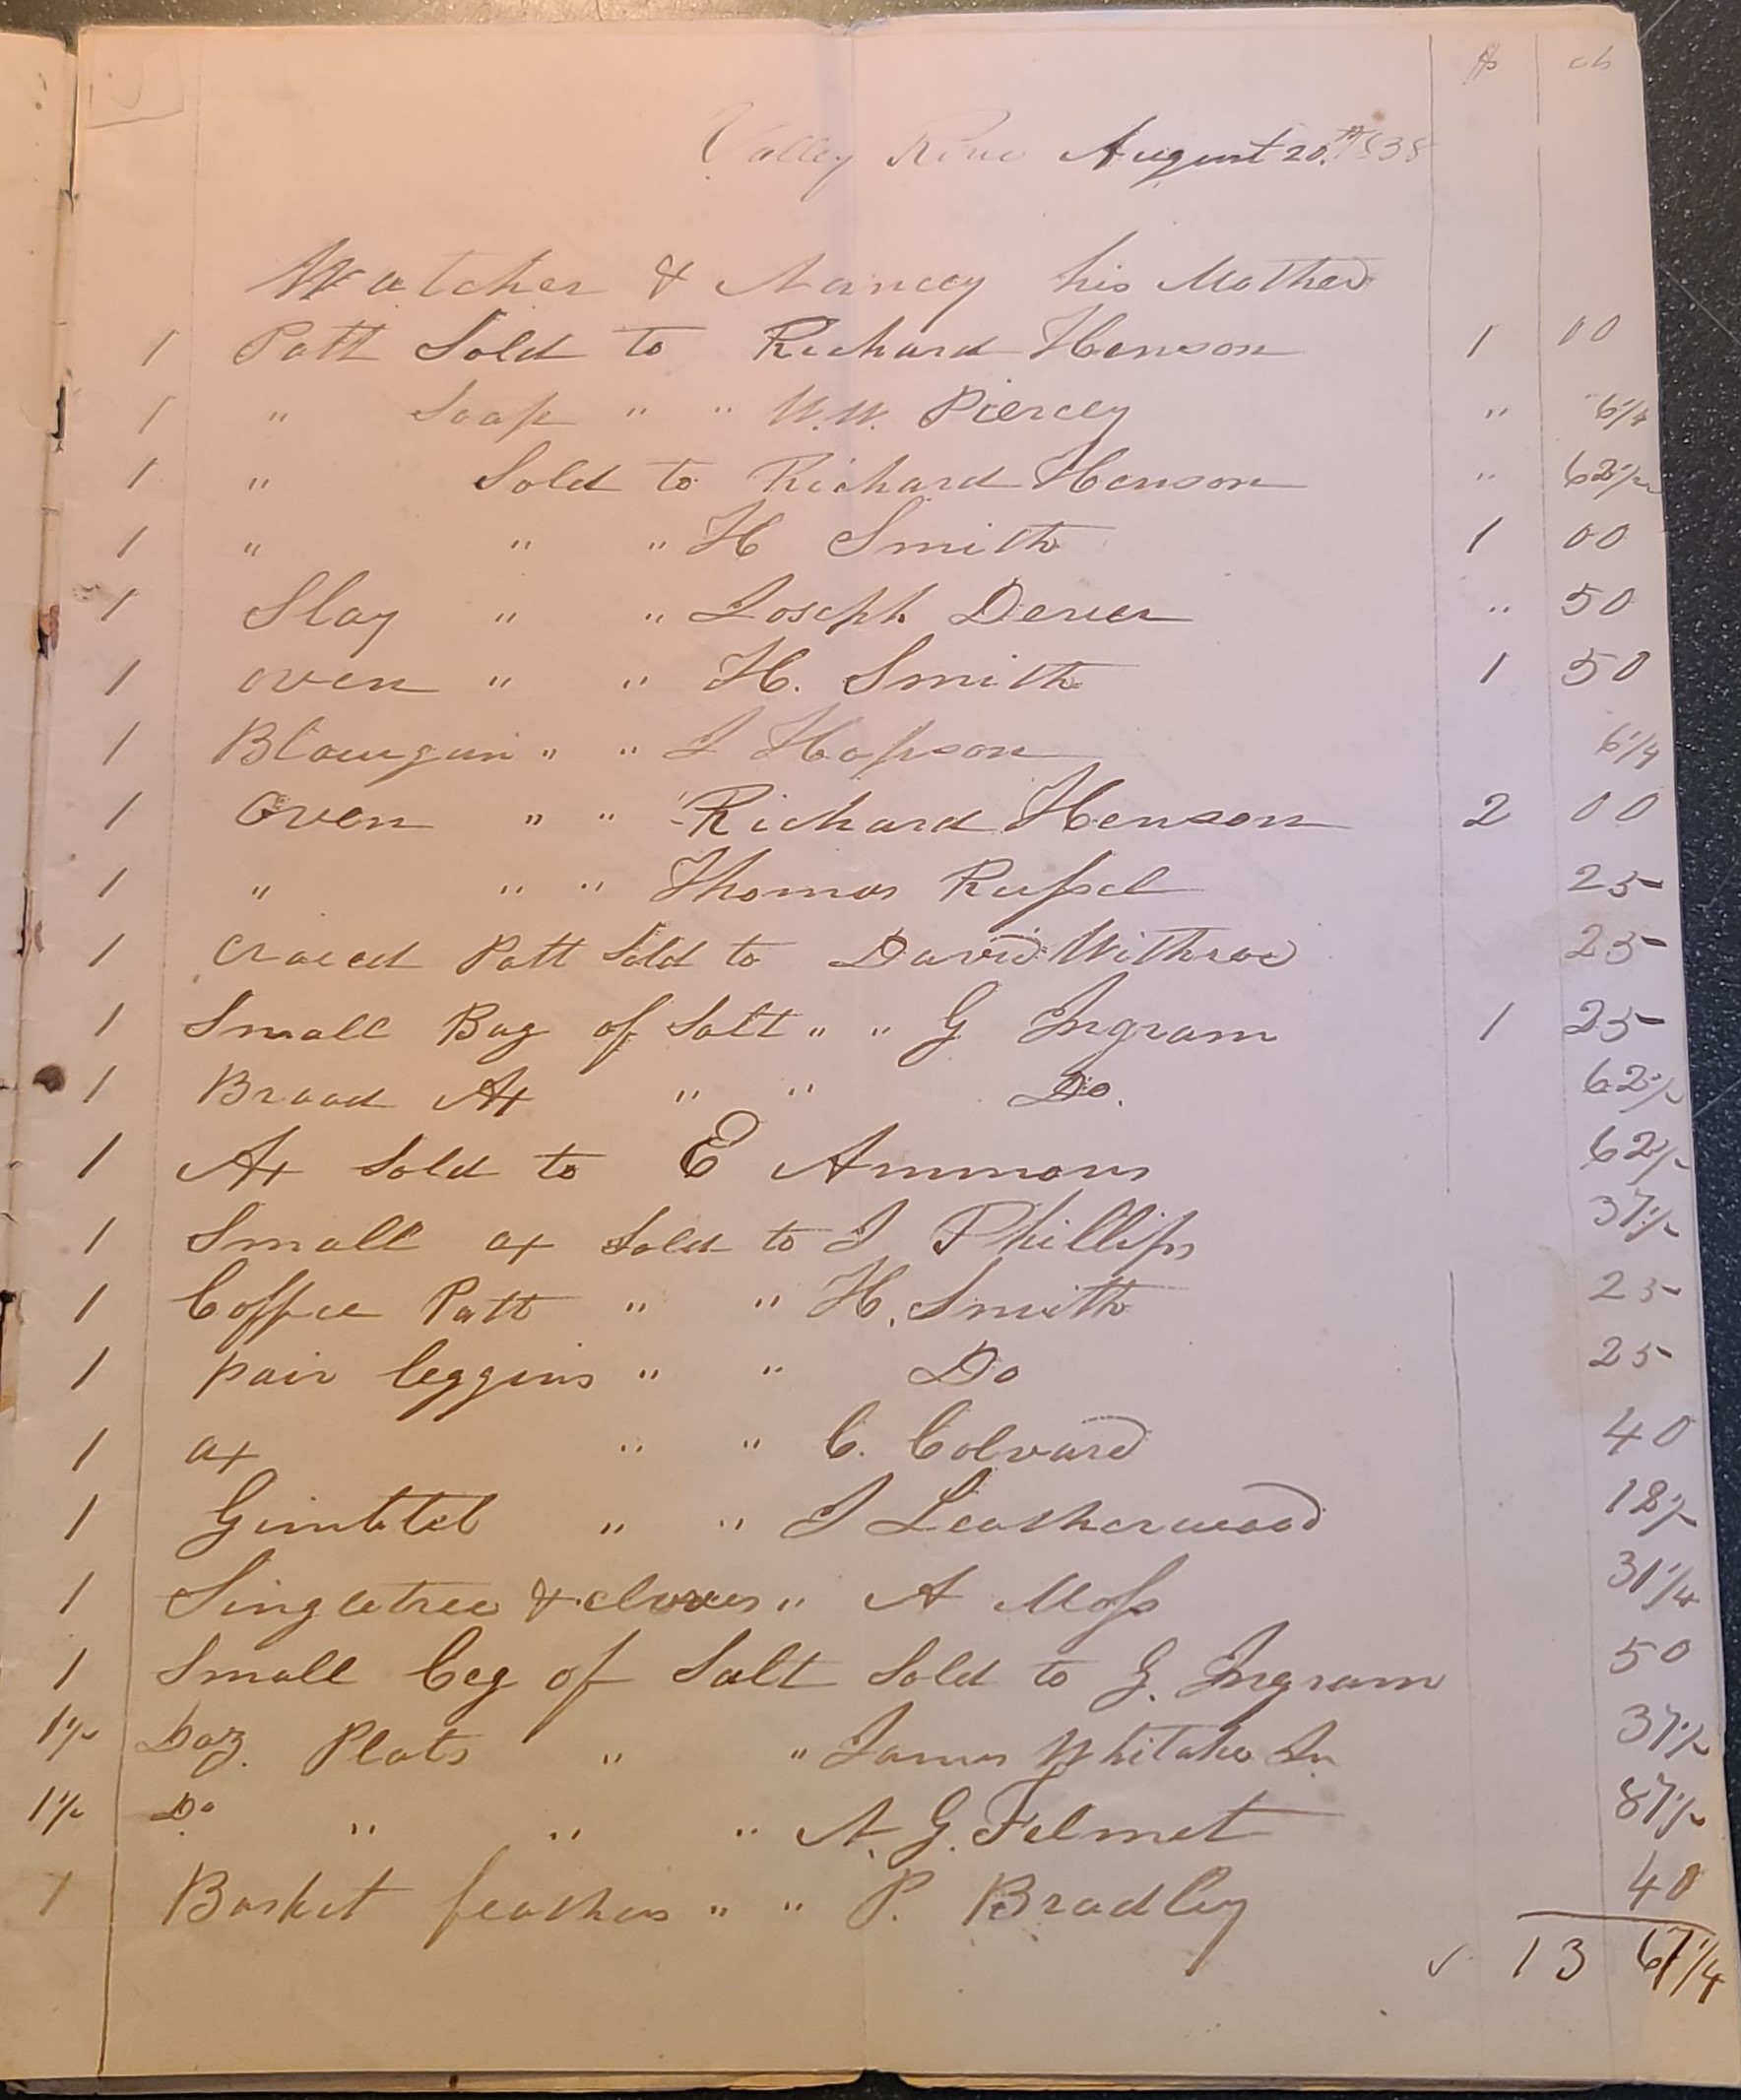 $ cts
Valley River August 20th 1838
Watcher & Nancy his Mother
1 Pott Sold to Richard Henson 1 00
1 " Soap " " W.W. Piercey " 6 1/4
1 " Sold to Richard Henson " 62 1/2
1 " " " H Smith 1 00
1 Slay " " Joseph Dever " 50
1 oven " " H. Smith 1 50
1 Blowgun " " J Hopson 6 1/4
1 Oven " " Richard Henson 2 00
1 " " " Thomas Russel 25
1 craced Pott Sold to David Withrow 25
1 Small Bag of Salt " " G Ingram 1 25
1 Broad Ax " " Do. 62 1/2
1 Ax Sold to E Ammons 62 1/2
1 Small ax Sold to J Phillips 37 1/2
1 Coffee Pott " " H. Smith 25
1 pair leggins " " Do 25
1 ax " " C. Colvard 40
1 Gimblet " " J Leatherwood 18 1/2
1 Singletree & " A Moss 31 1/4
1 Small Ceg of Salt Sold to G. Ingram 50
1 1/2 Doz. Plats " " James Whitaker Jn 37 1/2
1 1/2 Do " " " A. G. Felmet 87 1/2
1 Basket feathers " " P. Bradley 40
13 67 1/4